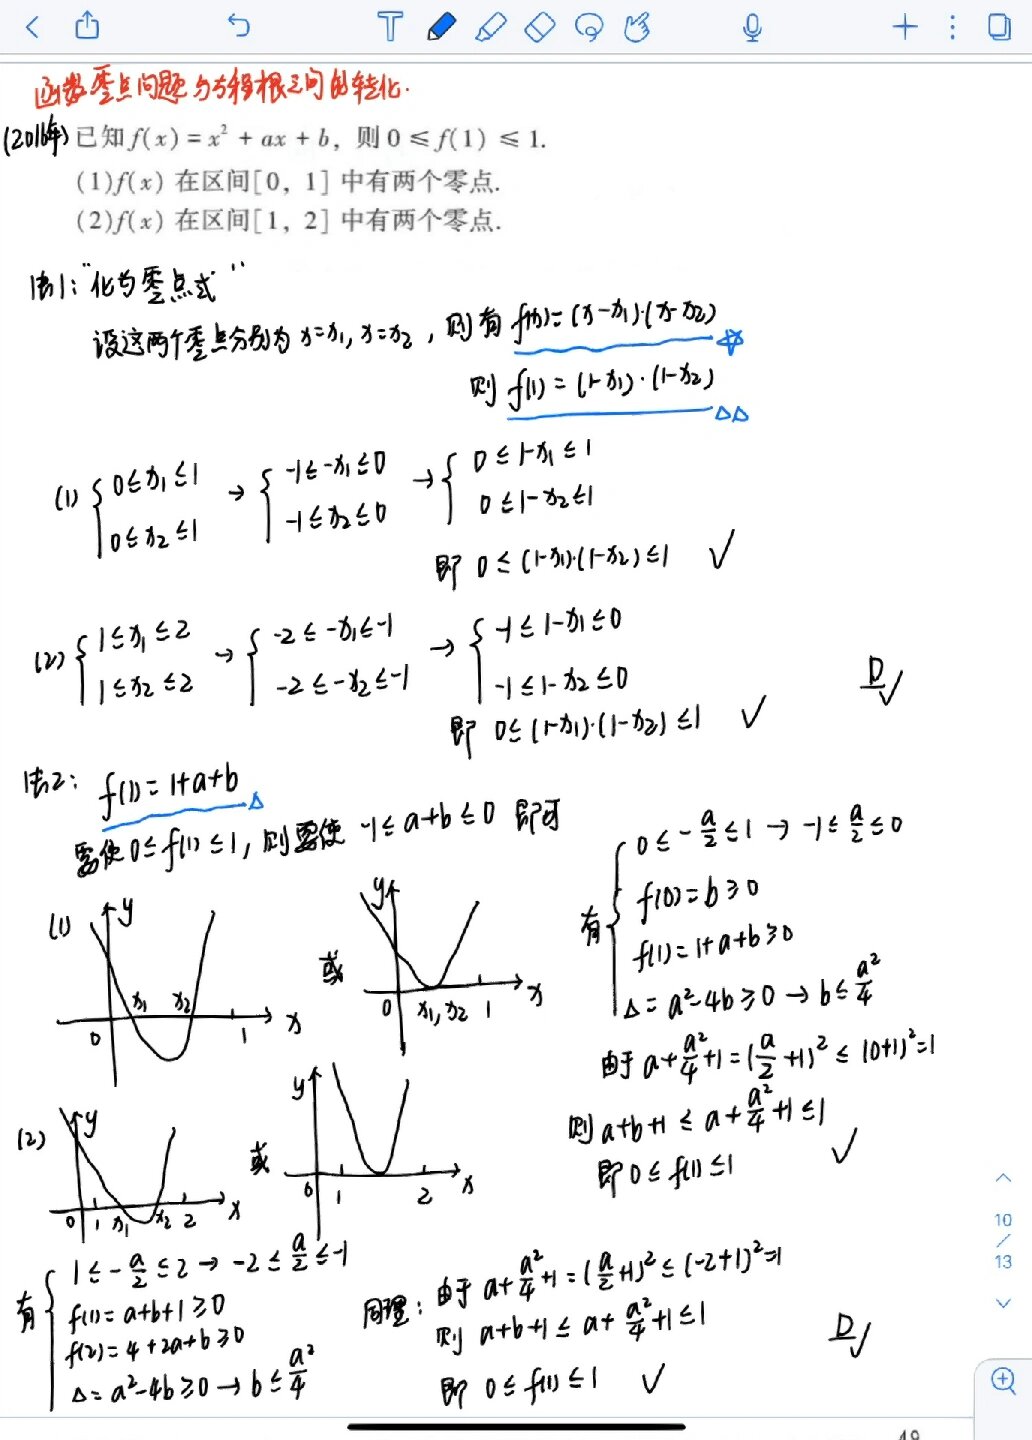 函数零点问题与方程根之间的转化.
(2016年) 已知 f(x) = x² + ax + b, 则 0 ≤ f(1) ≤ 1.
(1)f(x) 在区间[0, 1] 中有两个零点.
(2)f(x) 在区间[1, 2] 中有两个零点.
法1: "化为零点式"
设这两个零点分别为 x=x₁, x=x₂, 则有 f(x)=(x-x₁)·(x-x₂) ☆
则 f(1) = (1-x₁)·(1-x₂) △△
(1) { 0≤x₁≤1 → { -1≤-x₁≤0 → { 0≤1-x₁≤1
0≤x₂≤1 -1≤x₂≤0 0≤1-x₂≤1
即 0≤(1-x₁)·(1-x₂)≤1 ✓
(2) { 1≤x₁≤2 → { -2≤-x₁≤-1 → { -1≤1-x₁≤0
1≤x₂≤2 -2≤-x₂≤-1 -1≤1-x₂≤0
D ✓
即 0≤(1-x₁)·(1-x₂)≤1 ✓
法2: f(1)=1+a+b △
需使0≤f(1)≤1, 则需使 -1≤a+b≤0 即可
(1) y x₁ x₂ 0 1 x 或 y 0 x₁,x₂ 1 x
有 { 0≤-a/2≤1 → -1≤a/2≤0
f(0)=b≥0
f(1)=1+a+b≥0
△=a²-4b≥0 → b≤a²/4
由于 a+a²/4+1=(a/2+1)²≤(0+1)²=1
则 a+b+1≤a+a²/4+1≤1
即 0≤f(1)≤1 ✓
(2) y 0 1 x₁ x₂ 2 x 或 y 0 1 2 x
有 { 1≤-a/2≤2 → -2≤a/2≤-1
f(1)=a+b+1≥0
f(2)=4+2a+b≥0
△=a²-4b≥0 → b≤a²/4
同理: 由于 a+a²/4+1=(a/2+1)²≤(-2+1)²=1
则 a+b+1≤a+a²/4+1≤1
即 0≤f(1)≤1 ✓
D ✓
10
/
13